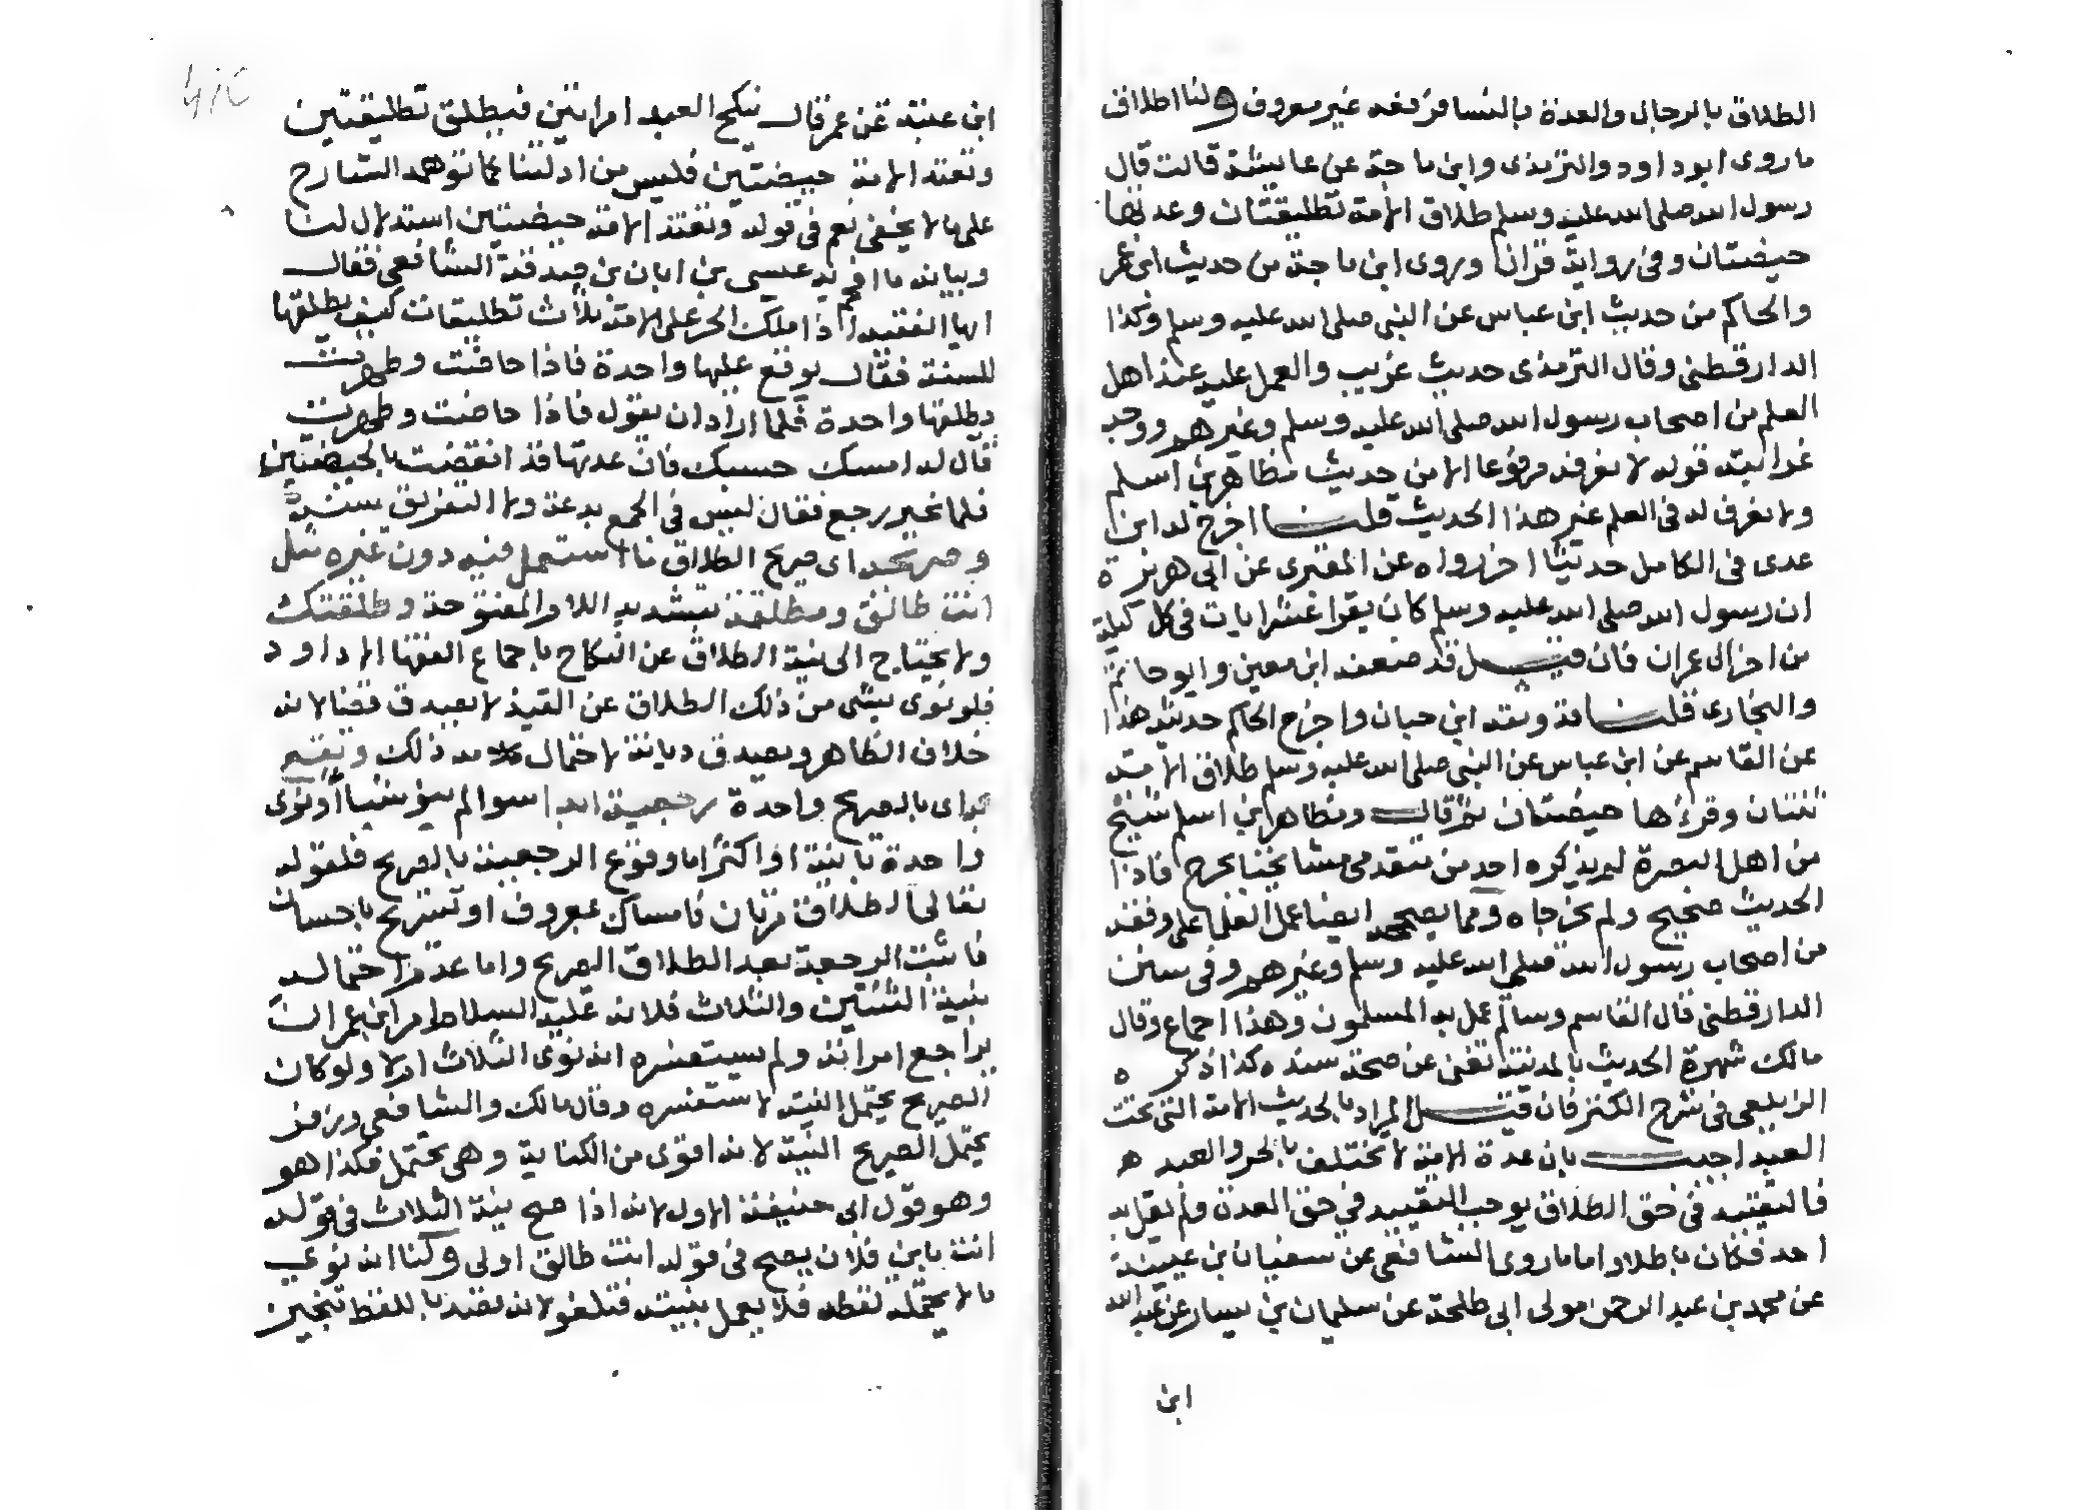 الطلاق بالرجال والعدة بالنسا فرفعه غير معروف ولنا اطلاق
ما روى ابو داود والترمذى وابن ماجة عن عايشة قالت قال
رسول الله صلى الله عليه وسلم طلاق الامة تطليقتان وعدتها
حيضتان وفى رواية قرآن وروى ابن ماجة من حديث ابن عمر
والحاكم من حديث ابن عباس عن النبى صلى الله عليه وسلم وكذا
الدارقطنى وقال الترمذى حديث غريب والعمل عليه عند اهل
العلم من اصحاب رسول الله صلى الله عليه وسلم وغيرهم ووجه
غرابيته قوله لا نعرفه مرفوعا الا من حديث مظاهر بن اسلم
ولا نعرف له فى العلم غير هذا الحديث قلنا اخرج له ابن
عدى فى الكامل حديثا اخر رواه عن المقبرى عن ابى هريرة
ان رسول الله صلى الله عليه وسلم كان يقرا عشر ايات فى كل ليلة
من اخر ال عمران فان قيل قد ضعفه ابن معين وابو حاتم
والبخارى قلنا قد وثقه ابن حبان واخرج الحاكم حديثه هذا
عن القاسم عن ابن عباس عن النبى صلى الله عليه وسلم طلاق الامة
ثنتان وقرءها حيضتان ثم قال ومظاهر بن اسلم شيخ
من اهل البصرة لم يذكره احد من متقدمى مشايخنا بجرح فاذا
الحديث صحيح ولم يخرجاه ومما يصححه ايضا عمل العلما على وفقه
من اصحاب رسول الله صلى الله عليه وسلم وغيرهم وفى سنن
الدارقطنى قال القاسم وسالم عمل به المسلمون وهذا اجماع وقال
مالك شهرة الحديث بالمدينة تغنى عن صحة سنده كذا ذكره
الزيلعى فى شرح الكنز فان قيل المراد بالحديث الامة التى تحت
العبد اجيب بان عدة الامة لا تختلف بالحر والعبد
فالتقييد فى حق الطلاق يوجب التقييد فى حق العدة ولم يقل به
احد فكان باطلا واما ما روى الشافعى عن سفيان بن عيينة
عن محمد بن عبد الرحمن مولى ابى طلحة عن سليمان بن يسار عن عبد الله
ابن
ابن عتبة عن عمر قال ينكح العبد امراتين فيطلق تطليقتين
وتعتد الامة حيضتين فليس من ادلتنا كما توهمه الشارح
على ما لا يخفى نعم فى قوله وتعتد الامة حيضتين استدلال لنا
وبيانه ما افحم به عيسى بن ابان بن صدقة الشافعى فقال
ايها الفقيه اذا ملك الحر على الامة ثلاث تطليقات كيف يطلقها
للسنة فقال يوقع عليها واحدة فاذا حاضت وطهرت
يطلقها واحدة فلما اراد ان يقول فاذا حاضت وطهرت
قال له امسك حسبك فان عدتها قد انقضت بالحيضتين
فلما تحير رجع فقال ليس فى الجمع بدعة ولا التفريق سنة
وصريحه اى صريح الطلاق ما استعمل فيه دون غيره مثل
انت طالق ومطلقة بتشديد اللام المفتوحة وطلقتك
ولا يحتاج الى نية الطلاق عن النكاح باجماع الفقها الا داود
فلو نوى بشى من ذلك الطلاق عن القيد لا يصدق قضا لانه
خلاف الظاهر ويصدق ديانة لاحتمال كلامه ذلك ويقع
به اى بالصريح واحدة رجعية ابدا سوا لم ينو شيا أو نوى
واحدة باينة او اكثر اما وقوع الرجعية بالصريح فلقوله
تعالى الطلاق مرتان فامساك بمعروف او تسريح باحسان
فاثبت الرجعة بعد الطلاق الصريح واما عدم احتماله
بنية الثنتين والثلاث فلانه عليه السلام امر ابن عمر ان
يراجع امراته ولم يستفسره انه نوى الثلاث ام لا ولو كان
الصريح يحتمل النية لاستفسره وقال مالك والشافعى وزفر
يحتمل الصريح النية لانه اقوى من الكناية وهى تحتمل فكذا هو
وهو قول ابى حنيفة الاول لانه اذا صح نية الثلاث فى قوله
انت باين فلان يصح فى قوله انت طالق اولى ولنا انه نوى
ما لا يحتمله لفظه فلا يعمل بنيته فتلغو لانه تقيد باللفظ تنجيز